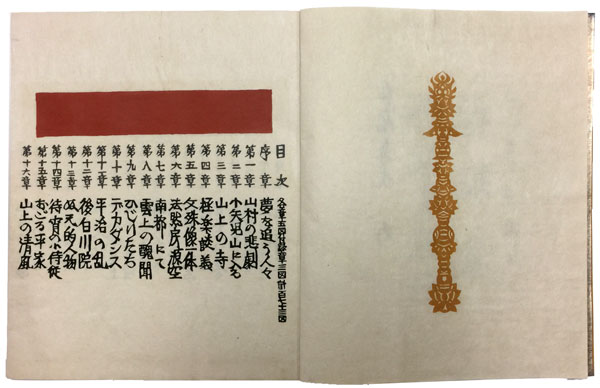 目次
序章 夢を追う人々
第一章 山村の悲劇
第二章 小矢児山に入る
第三章 山上の寺
第四章 極楽談義
第五章 文殊像一体
第六章 法然房源空
第七章 南都にて
第八章 雲上の醜聞
第九章 ひじりたち
第十章 デカダンス
第十一章 平治の乱
第十二章 後白川院
第十三章 ぬえ的人物
第十四章 待宵の小侍従
第十五章 おごる平家
第十六章 山上の清風